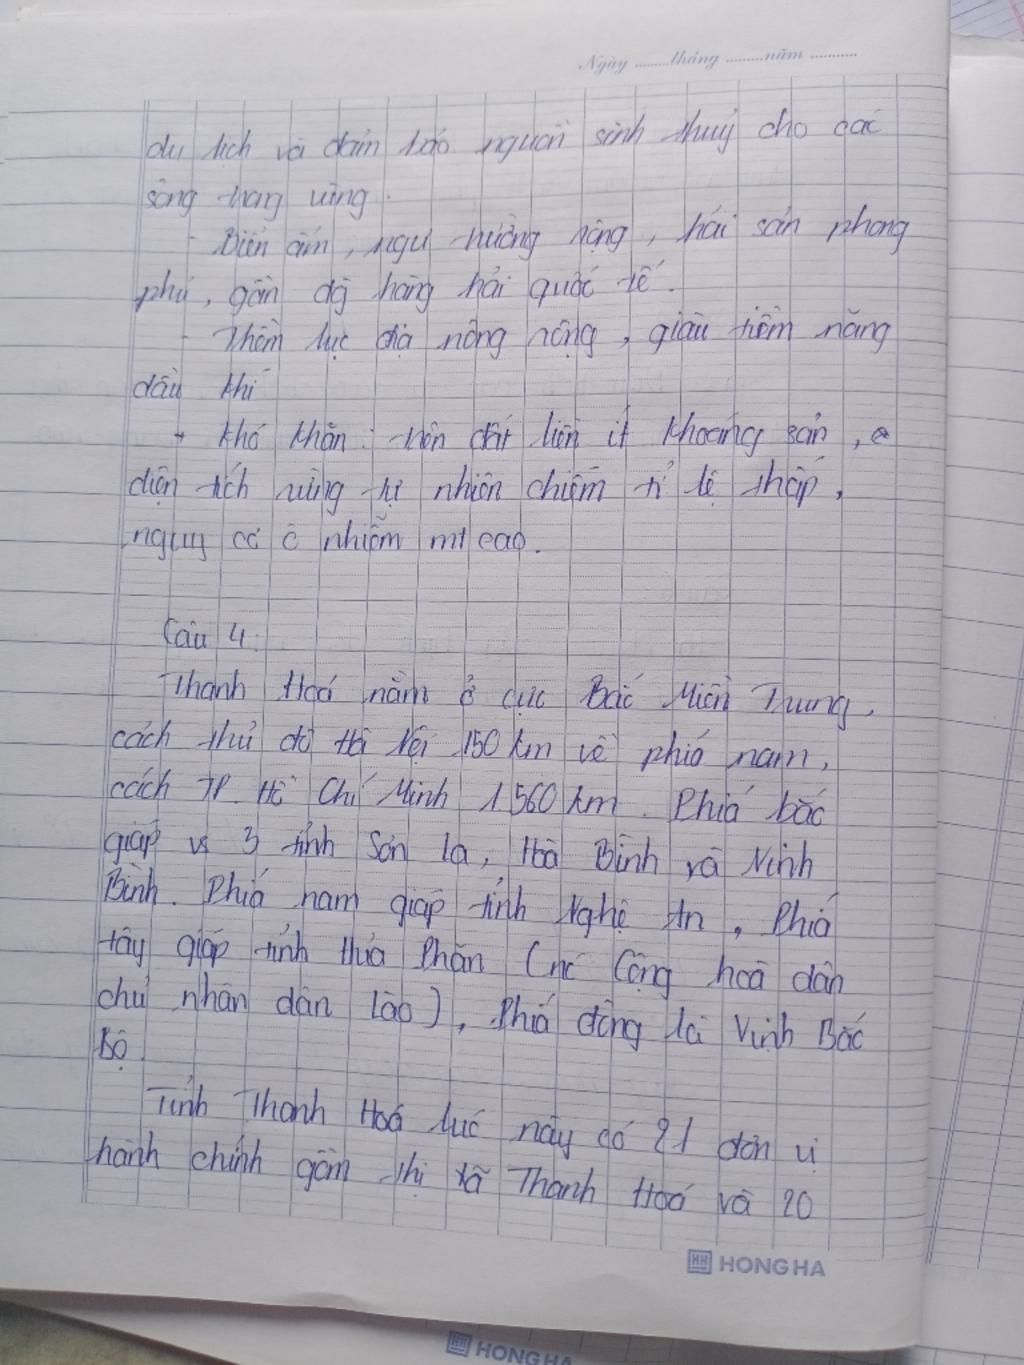 Ngày ........tháng .........năm ...........
du lịch và đảm bảo nguồn sinh thuỷ cho các
sông trong vùng.
- Biển ấm, ngư trường rộng, hải sản phong
phú, gần đg hàng hải quốc tế.
- Thềm lục địa nông rộng, giàu tiềm năng
dầu khí
+ Khó khăn: trên đất liền ít khoáng sản,
diện tích rừng tự nhiên chiếm tỉ lệ thấp,
nguy cơ ô nhiễm mt cao.
Câu 4:
Thanh Hoá nằm ở cực Bắc Miền Trung,
cách thủ đô Hà Nội 150 km về phía nam,
cách TP. Hồ Chí Minh 1560 km. Phía bắc
giáp vs 3 tỉnh Sơn La, Hoà Bình và Ninh
Bình. Phía nam giáp tỉnh Nghệ An, Phía
tây giáp tỉnh Hủa Phăn (nc Cộng hoà dân
chủ nhân dân Lào), Phía đông là Vịnh Bắc
Bộ.
Tỉnh Thanh Hoá lúc này có 21 đơn vị
hành chính gồm thị xã Thanh Hoá và 20
HONG HA
HONG HA